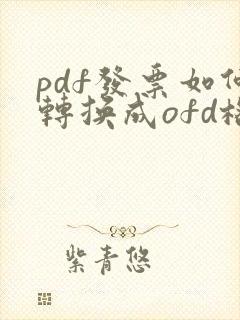 pdf發票如何
轉換成ofd格
紫青悠